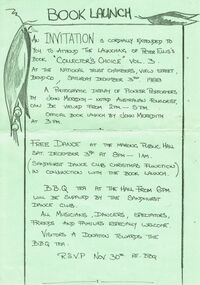 BOOK LAUNCH
AN INVITATION IS CORDIALLY EXTENDED TO
YOU TO ATTEND THE LAUNCHING OF PETER ELLIS'S
BOOK "COLLECTOR'S CHOICE" VOL. 3.
AT THE NATIONAL TRUST CHAMBERS, VIEW STREET,
BENDIGO SATURDAY DECEMBER 3RD, 1988
A PHOTOGRAPHIC DISPLAY OF PIONEER PERFORMERS
BY JOHN MEREDITH - NOTED AUSTRALIAN FOLKLORIST,
CAN BE VIEWED FROM 2PM - 5PM.
OFFICIAL BOOK LAUNCH BY JOHN MEREDITH
AT 3PM.
FREE DANCE AT THE MARONG PUBLIC HALL
SAT. DECEMBER 3RD AT 8PM - 1AM.
(SANDHURST DANCE CLUB CHRISTMAS FUNCTION)
IN CONJUNCTION WITH THE BOOK LAUNCH.
B.B.Q TEA AT THE HALL FROM 6PM
WILL BE SUPPLIED BY THE SANDHURST
DANCE CLUB.
ALL MUSICIANS, DANCERS, SPECTATORS,
FRIENDS AND FAMILIES ESPECIALLY WELCOME.
VISITORS A DONATION TOWARDS THE
B.B.Q TEA.
R.S.V.P NOV 30TH AT BBQ